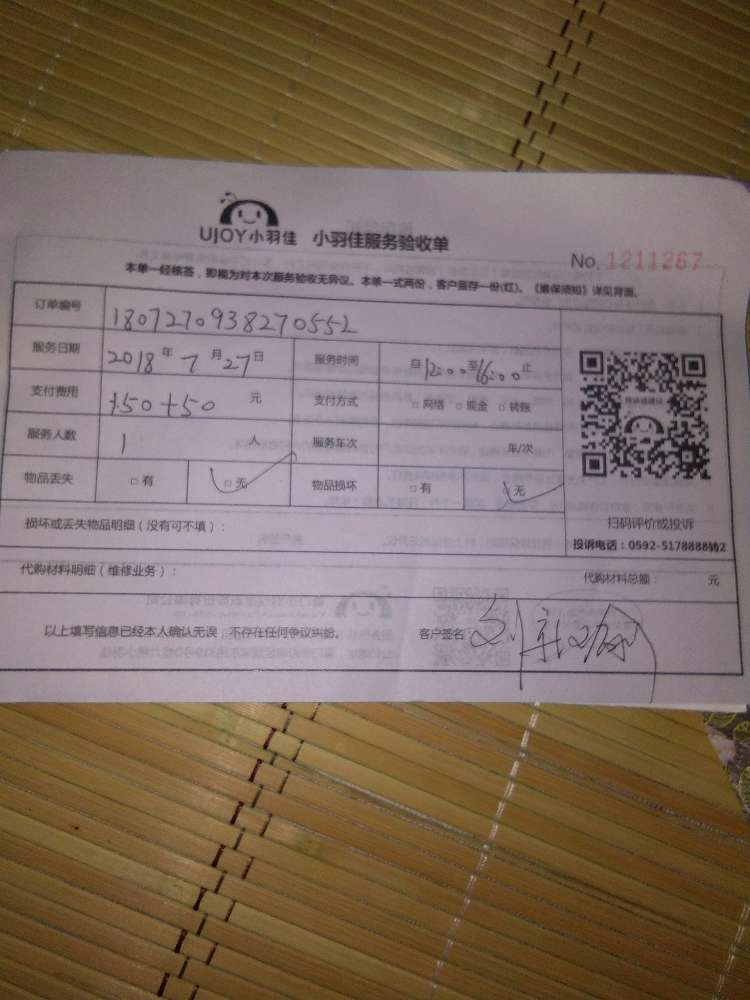 UJOY小羽佳 小羽佳服务验收单
No. 1211267
本单一经核签，即视为对本次服务验收无异议。本单一式两份，客户留存一份(红)。《维保须知》详见背面。
订单编号 1807270938270552
服务日期 2018 年 7 月 27 日 服务时间 自 12:00 至 16:00 止
支付费用 +50 元 支付方式 □ 网络 □ 现金 □ 转账
服务人数 1 人 服务车次 车/次
物品丢失 □ 有 □ 无 物品损坏 □ 有 □ 无
扫码评价或投诉
投诉电话：0592-5178888转2
损坏或丢失物品明细（没有可不填）：
代购材料明细（维修业务）： 代购材料总额： 元
以上填写信息已经本人确认无误，不存在任何争议纠纷。 客户签名：